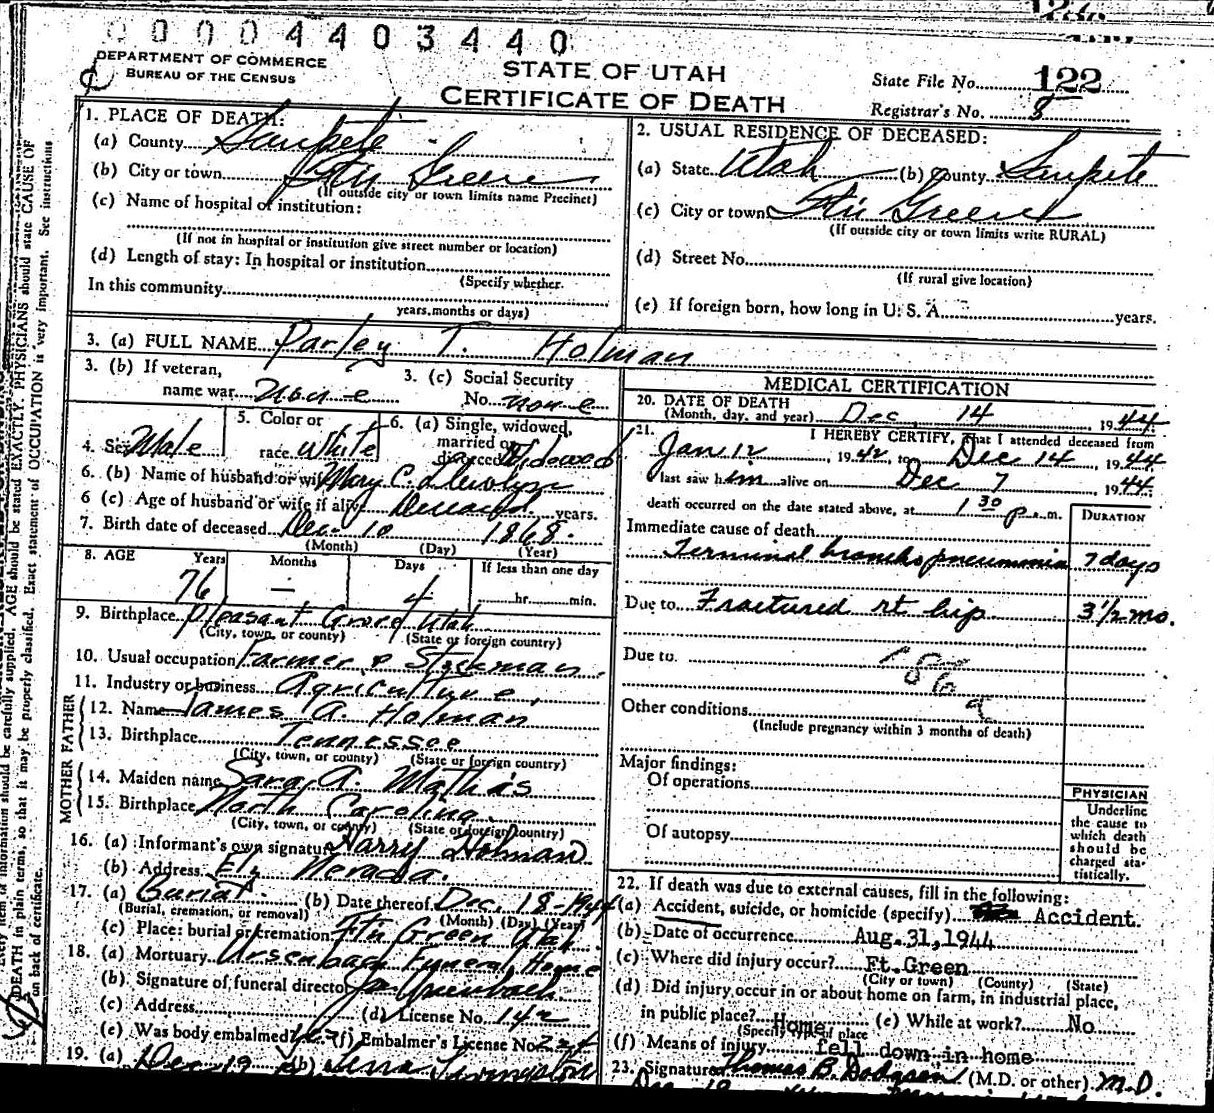 0 0 0 0 4 4 0 3 4 4 0
DEPARTMENT OF COMMERCE
BUREAU OF THE CENSUS
STATE OF UTAH
CERTIFICATE OF DEATH
State File No. 122
Registrar's No. 8
1. PLACE OF DEATH:
(a) County Sanpete
(b) City or town Ftn Green
(If outside city or town limits name Precinct)
(c) Name of hospital of institution:
(If not in hospital or institution give street number or location)
(d) Length of stay: In hospital or institution
(Specify whether
In this community
years, months or days)
2. USUAL RESIDENCE OF DECEASED:
(a) State Utah (b) County Sanpete
(c) City or town Ftn Green
(If outside city or town limits write RURAL)
(d) Street No.
(If rural give location)
(e) If foreign born, how long in U. S. A. years.
3. (a) FULL NAME Parley T. Holman
3. (b) If veteran, name war None
3. (c) Social Security No. none
4. Sex Male
5. Color or race White
6. (a) Single, widowed, married or divorced Widowed
6. (b) Name of husband or wife Mary C. Llewlyn
6 (c) Age of husband or wife if alive Deceased years.
7. Birth date of deceased Dec. 10 1868.
(Month) (Day) (Year)
8. AGE Years Months Days If less than one day
76 — 4 hr. min.
9. Birthplace Pleasant Grove Utah
(City, town, or county) (State or foreign country)
10. Usual occupation Farmer & Stockman
11. Industry or business Agriculture
FATHER
12. Name James A. Holman
13. Birthplace Tennessee
(City, town, or county) (State or foreign country)
MOTHER
14. Maiden name Sara A. Mathis
15. Birthplace North Carolina.
(City, town, or county) (State or foreign country)
16. (a) Informant's own signature Harry Holman
(b) Address Ely Nevada.
17. (a) Burial (b) Date thereof Dec. 18-1944
(Burial, cremation, or removal) (Month) (Day) (Year)
(c) Place: burial or cremation Ftn Green Utah
18. (a) Mortuary Ursenbach Funeral Home
(b) Signature of funeral director Ursenbach
(c) Address (d) License No. 142
(e) Was body embalmed? Yes (f) Embalmer's License No. 224
19. (a) Dec 19 (b) Lena Livingston
MEDICAL CERTIFICATION
20. DATE OF DEATH
(Month, day, and year) Dec. 14 1944
21. I HEREBY CERTIFY, That I attended deceased from
Jan 12, 1942, to Dec 14, 1944
last saw him alive on Dec 7, 1944.
death occurred on the date stated above, at 1 30 p.m. DURATION
Immediate cause of death
Terminal broncho pneumonia 7 days
Due to Fractured rt hip 3 1/2 mo.
Due to 186 a
Other conditions
(Include pregnancy within 3 months of death)
Major findings:
Of operations
Of autopsy
PHYSICIAN
Underline
the cause to
which death
should be
charged sta-
tistically.
22. If death was due to external causes, fill in the following:
(a) Accident, suicide, or homicide (specify) Accident.
(b) Date of occurrence Aug.31,1944
(c) Where did injury occur? Ft.Green
(City or town) (County) (State)
(d) Did injury occur in or about home on farm, in industrial place,
in public place? Home (e) While at work? No
(Specify type of place
(f) Means of injury fell down in home
23. Signature Thomas B. Dodgson (M.D. or other) M.D.